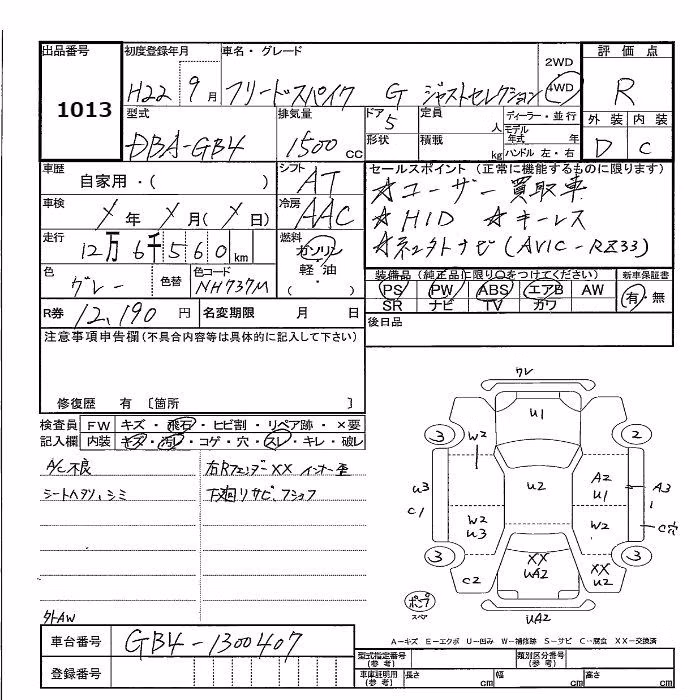 出品番号
1013
初度登録年月
H22 9月
車名・グレード
フリードスパイク G ジャストセレクション
2WD
4WD
評価点
R
外装 内装
D C
型式
DBA-GB4
排気量
1500cc
ドア 5
形状
定員 人
積載 kg
ディーラー・並行
モデル年式 年
ハンドル 左・右
車歴
自家用・( )
シフト
AT
セールスポイント(正常に機能するものに限ります)
☆ユーザー買取車
☆HID ☆キーレス
☆ネクタトナビ(AVIC-RZ33)
車検
年 月( 日)
冷房
AAC
走行
12万6千560km
燃料
ガソリン
軽・油
( ・ )
色
グレー
色替
色コード
NH737M
装備品(純正品に限り○をつけてください)
PS PW ABS エアB AW
SR ナビ TV カワ
新車保証書
有・無
R券 12,190円
名変期限 月 日
後日品
注意事項申告欄(不具合内容等は具体的に記入して下さい)
修復歴 有 〔箇所 〕
検査員 FW キズ・飛石・ヒビ割・リペア跡・×要
記入欄 内装 キズ・汚レ・コゲ・穴・スレ・キレ・破レ
A/C不良
右Rフェンダー××インナー歪
シートヘタリ、シミ
下廻リサビ、フショク
外AW
ワレ
U1
3
2
W2
U2
A2
U1
U3
C1
A3
W2
U3
W2
C穴
3
3
XX
UA2
C2
XX
U2
ポンプ
スペア
UA2
A-キズ E-エクボ U-凹み W-補修跡 S-サビ C-腐食 XX-交換済
車台番号
GB4-1300407
登録番号
型式指定番号(参考)
類別区分番号(参考)
車庫証明用(参考)
長さ cm
幅 cm
高さ cm